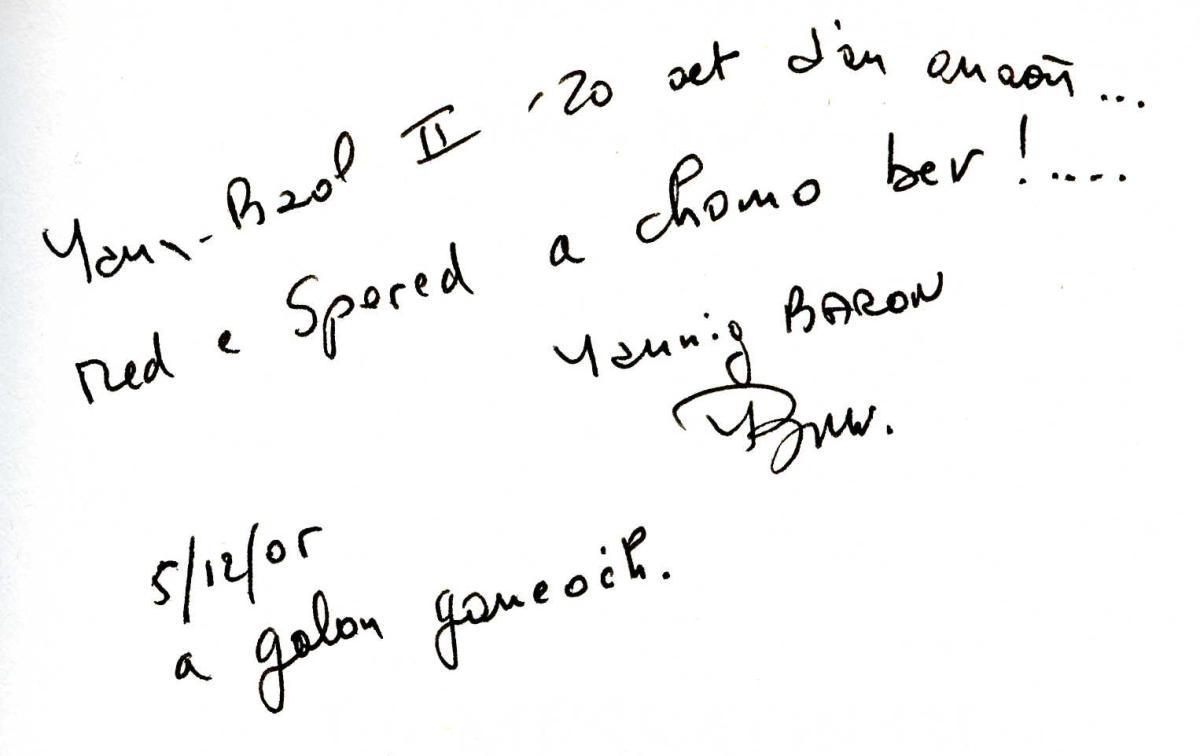 Yann-Baol II 'zo aet d'an anaoñ...
med e Spered a chomo bev !.....
Yannig BARON
5/12/05
a galon ganeoc'h.